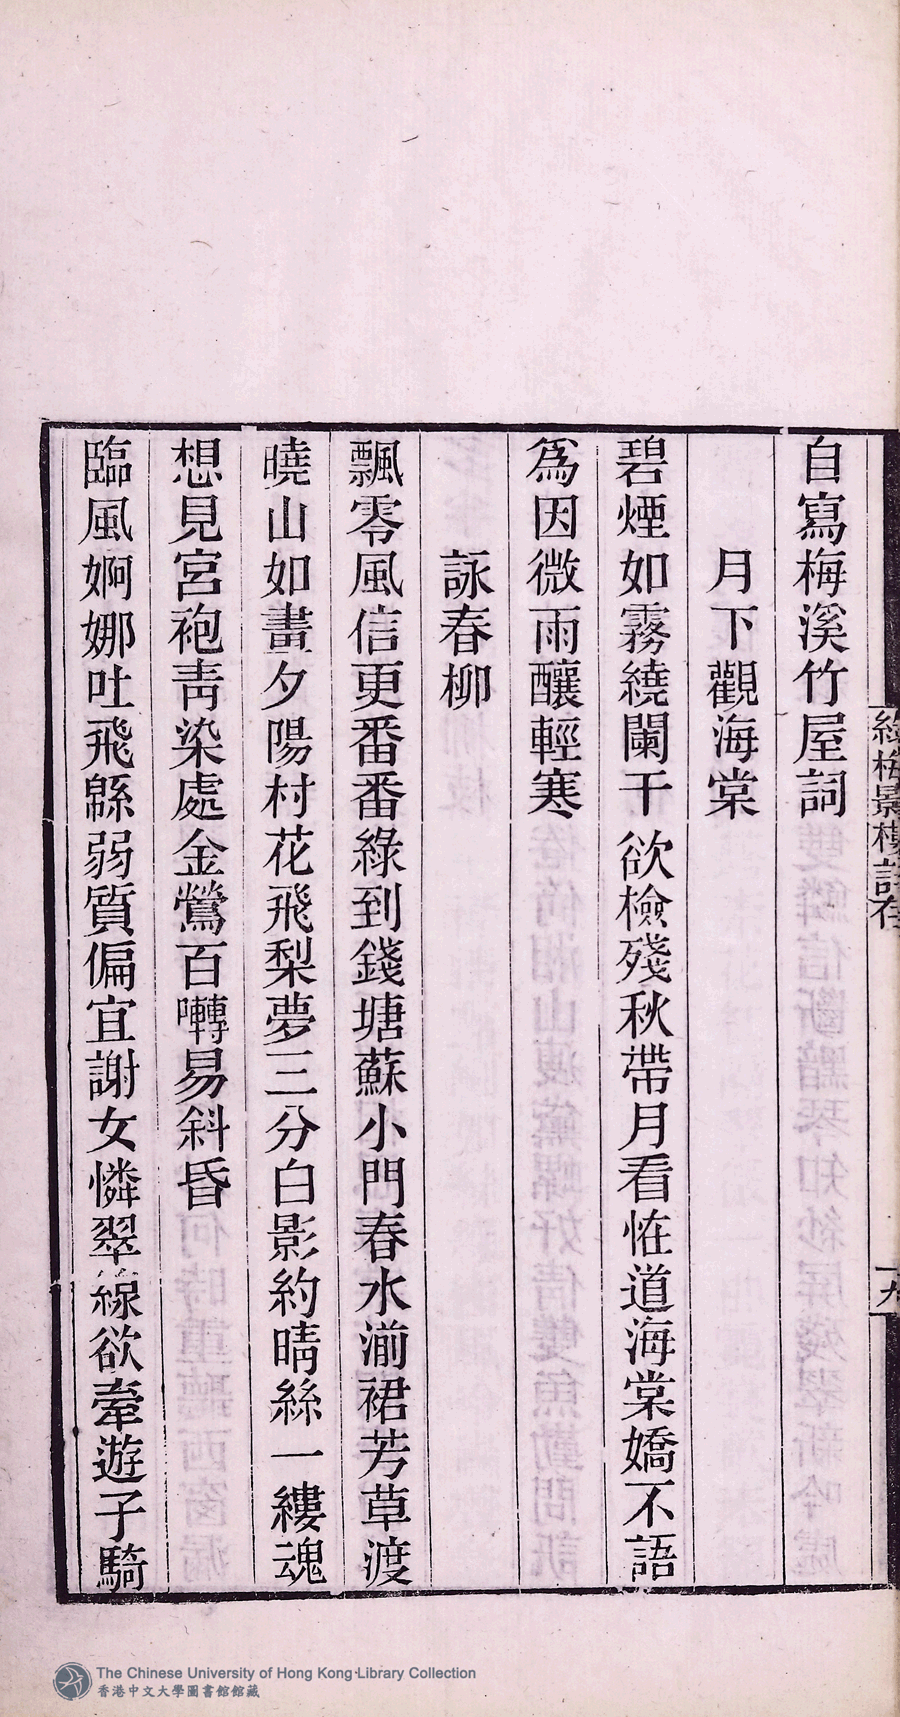 自寫梅溪竹屋詞
月下觀海棠
碧煙如霧繞闌干欲檢殘秋帶月看恠道海棠嬌不語
為因微雨釀輕寒
詠春柳
飄零風信更番番綠到錢塘蘇小門春水湔裙芳草渡
曉山如畫夕陽村花飛梨夢三分白影約晴絲一縷魂
想見宮袍靑染處金鶯百囀易斜昏
臨風婀娜吐飛緜弱質偏宜謝女憐翠線欲牽遊子騎
The Chinese University of Hong Kong Library Collection
香港中文大學圖書館館藏